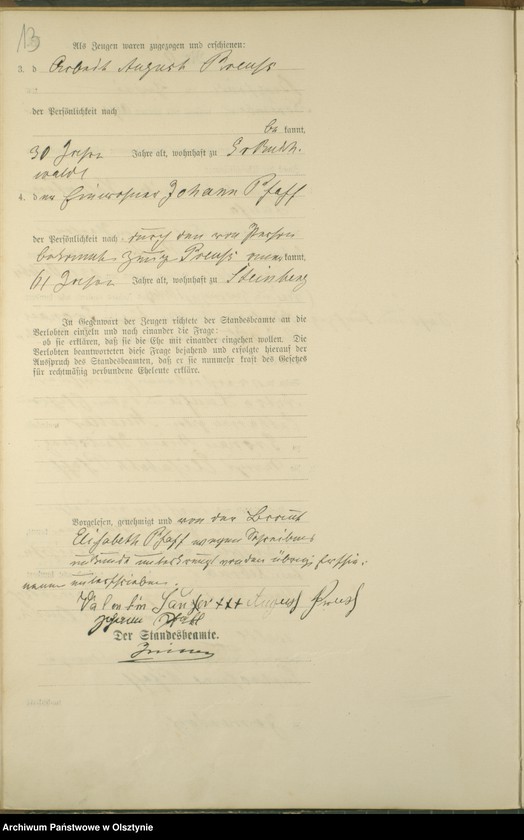 13
Als Zeugen waren zugezogen und erschienen:
3. d Arbeit August Preuß
der Persönlichkeit nach
be kannt,
30 Jahre Jahre alt, wohnhaft zu
walde
4. den Einwohner Johann Pfaff
der Persönlichkeit nach durch den von Person
bekannt Zeug Preuß kannt,
61 Jahre Jahre alt, wohnhaft zu Steinberg
In Gegenwart der Zeugen richtete der Standesbeamte an die
Verlobten einzeln und nach einander die Frage:
ob sie erklären, daß sie die Ehe mit einander eingehen wollen. Die
Verlobten beantworteten diese Frage bejahend und erfolgte hierauf der
Ausspruch des Standesbeamten, daß er sie nunmehr kraft des Gesetzes
für rechtmäßig verbundene Eheleute erkläre.
Vorgelesen, genehmigt und von der Braut
Elisabeth Pfaff wegen Schreibens
unkunde unterkreuzt von den übrig Erschie-
nenen unterschrieben.
Valentin +++ August Preuß
Johann Pfaff
Der Standesbeamte.
Archiwum Państwowe w Olsztynie